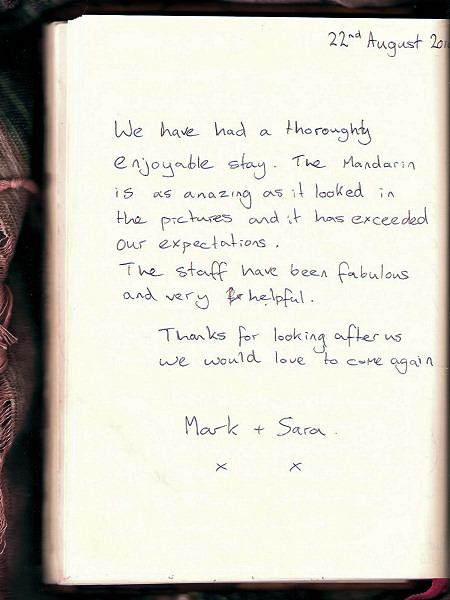 22nd August
We have had a thoroughly
enjoyable stay. The Mandarin
is as amazing as it looked in
the pictures and it has exceeded
our expectations.
The staff have been fabulous
and very helpful.
Thanks for looking after us
we would love to come again
Mark + Sara.
x x